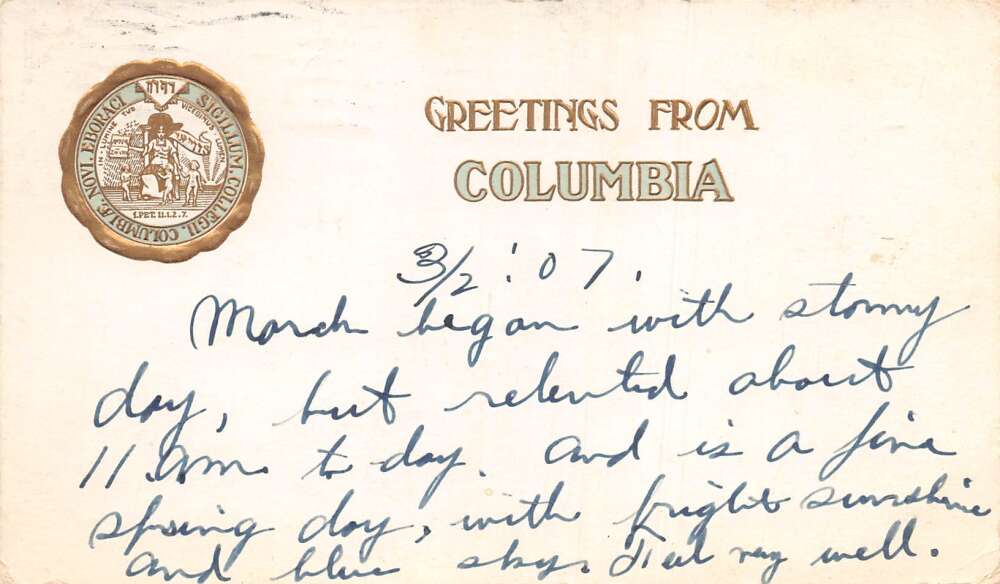 GREETINGS FROM
COLUMBIA
SIGILLUM. COLLEGII. COLUMBIÆ. NOVI. EBORACI
IN LUMINE TUO VIDEBIMUS LUMEN
I.PET. II.1.2.7.
3/2 '07.
March began with stormy
day, but relented about
11 am to day. and is a fine
spring day, with bright sunshine
and blue sky. well.